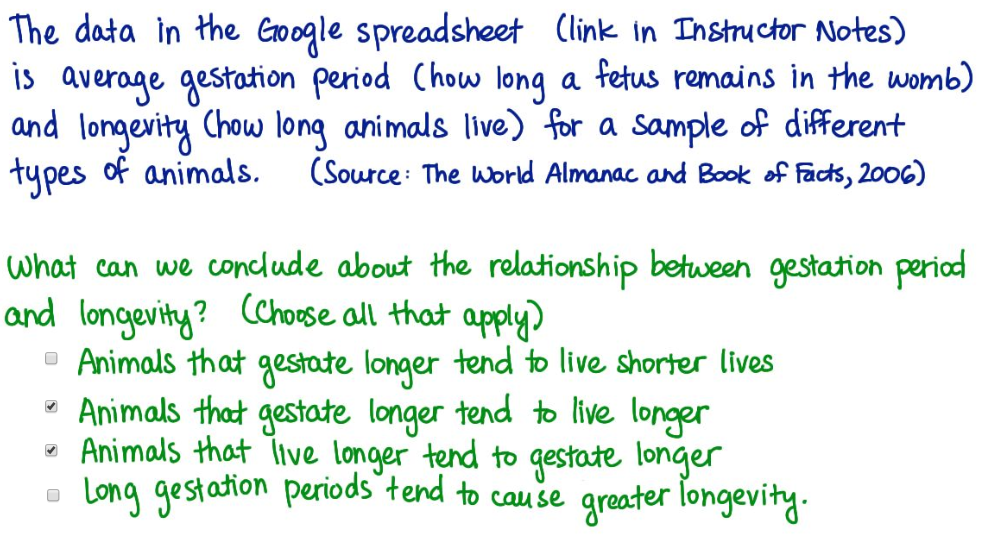 The data in the Google spreadsheet (link in Instructor Notes)
is average gestation period (how long a fetus remains in the womb)
and longevity (how long animals live) for a sample of different
types of animals. (Source: The World Almanac and Book of Facts, 2006)
What can we conclude about the relationship between gestation period
and longevity? (Choose all that apply)
Animals that gestate longer tend to live shorter lives
Animals that gestate longer tend to live longer
Animals that live longer tend to gestate longer
Long gestation periods tend to cause greater longevity.